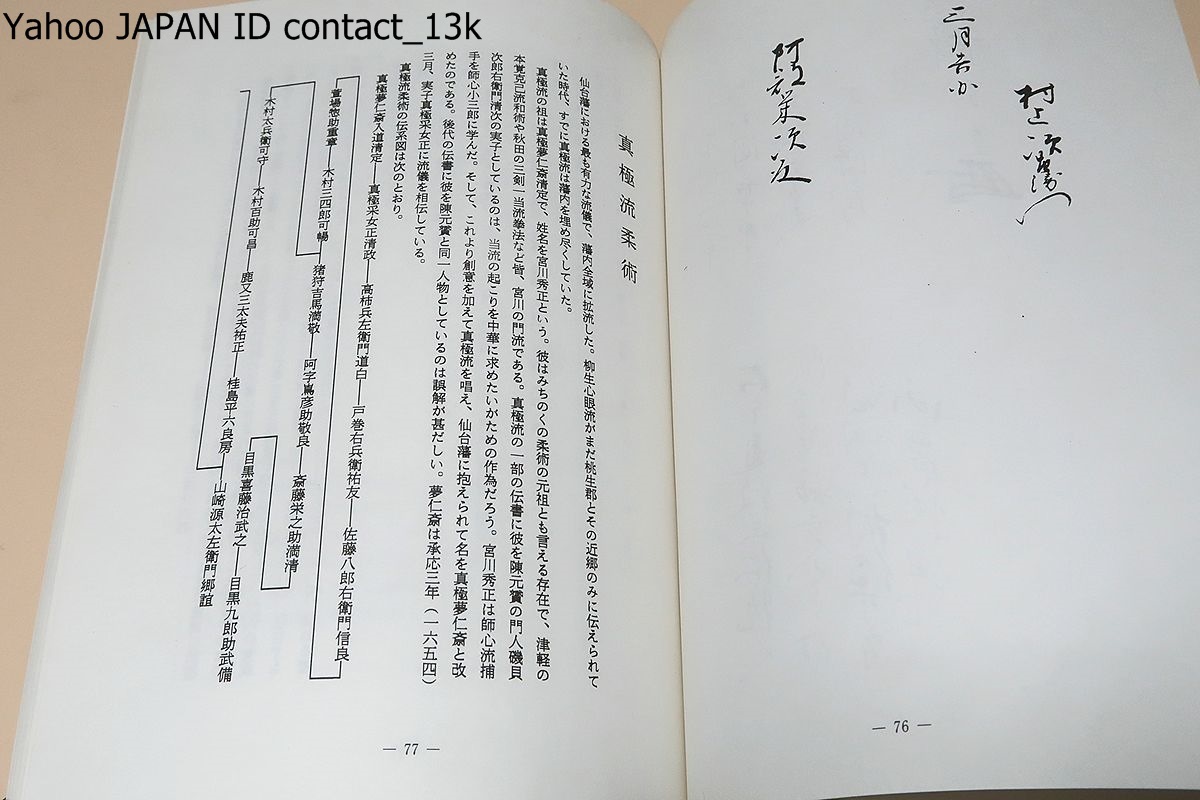 Yahoo JAPAN ID contact_13k
三月吉日
— 76 —
真極流柔術
仙台藩における最も有力な流儀で、藩内全域に拡流した。柳生心眼流がまだ桃生郡とその近郷のみに伝えられて
いた時代、すでに真極流は藩内を埋め尽くしていた。
真極流の祖は真極夢仁斎清定で、姓名を宮川秀正という。彼はみちのくの柔術の元祖とも言える存在で、津軽の
本覚克己流和術や秋田の三剣一当流拳法など皆、宮川の門流である。真極流の一部の伝書に彼を陳元贇の門人磯貝
次郎右衛門清次の実子としているのは、当流の起こりを中華に求めたいがための作為だろう。宮川秀正は師心流捕
手を師心小三郎に学んだ。そして、これより創意を加えて真極流を唱え、仙台藩に抱えられて名を真極夢仁斎と改
めたのである。後代の伝書に彼を陳元贇と同一人物としているのは誤解が甚だしい。夢仁斎は承応三年（一六五四）
三月、実子真極采女正に流儀を相伝している。
真極流柔術の伝系図は次のとおり。
真極夢仁斎入道清定―真極采女正清政―高柿兵左衛門道白―戸巻右兵衛祐友―佐藤八郎右衛門信良
萱場惣助重章―木村三四郎可暢
猪狩吉馬満敬―阿字嶌彦助敬良―斎藤栄之助満清
目黒喜藤治武之―目黒九郎助武備
木村太兵衛可守―木村百助可昌―鹿又三太夫祐正―桂島平六良房
山崎源太左衛門郷誼
— 77 —